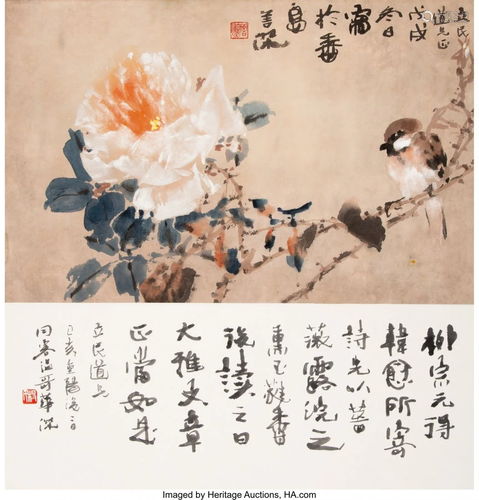 立民
道兄正
戊戌
冬日
寫
於香
島
善深
柳宗元得
韓愈所寄
詩先以薔
薇露浣之
熏玉蕤香
後讀之曰
大雅文章
正當如是
立民道兄
同客溫哥華深
Imaged by Heritage Auctions, HA.com